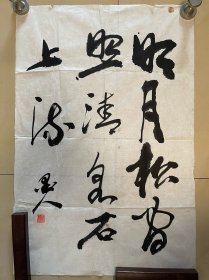 明月松间
照清泉石
上流